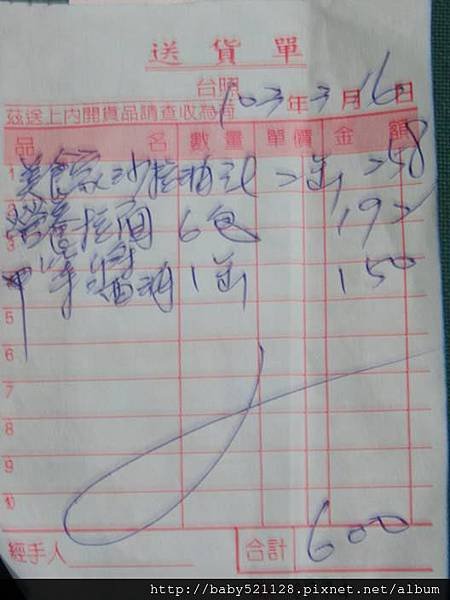 送貨單
台照
103年3月16日
茲送上內開貨品請查收為荷
品名 數量 單價 金額
1 美食家沙拉油 2缶 258
營養拉面 6包 192
3
4 醬油 1缶 150
5
6
7
8
9
10
經手人 合計 600
http://baby521128.pixnet.net/album